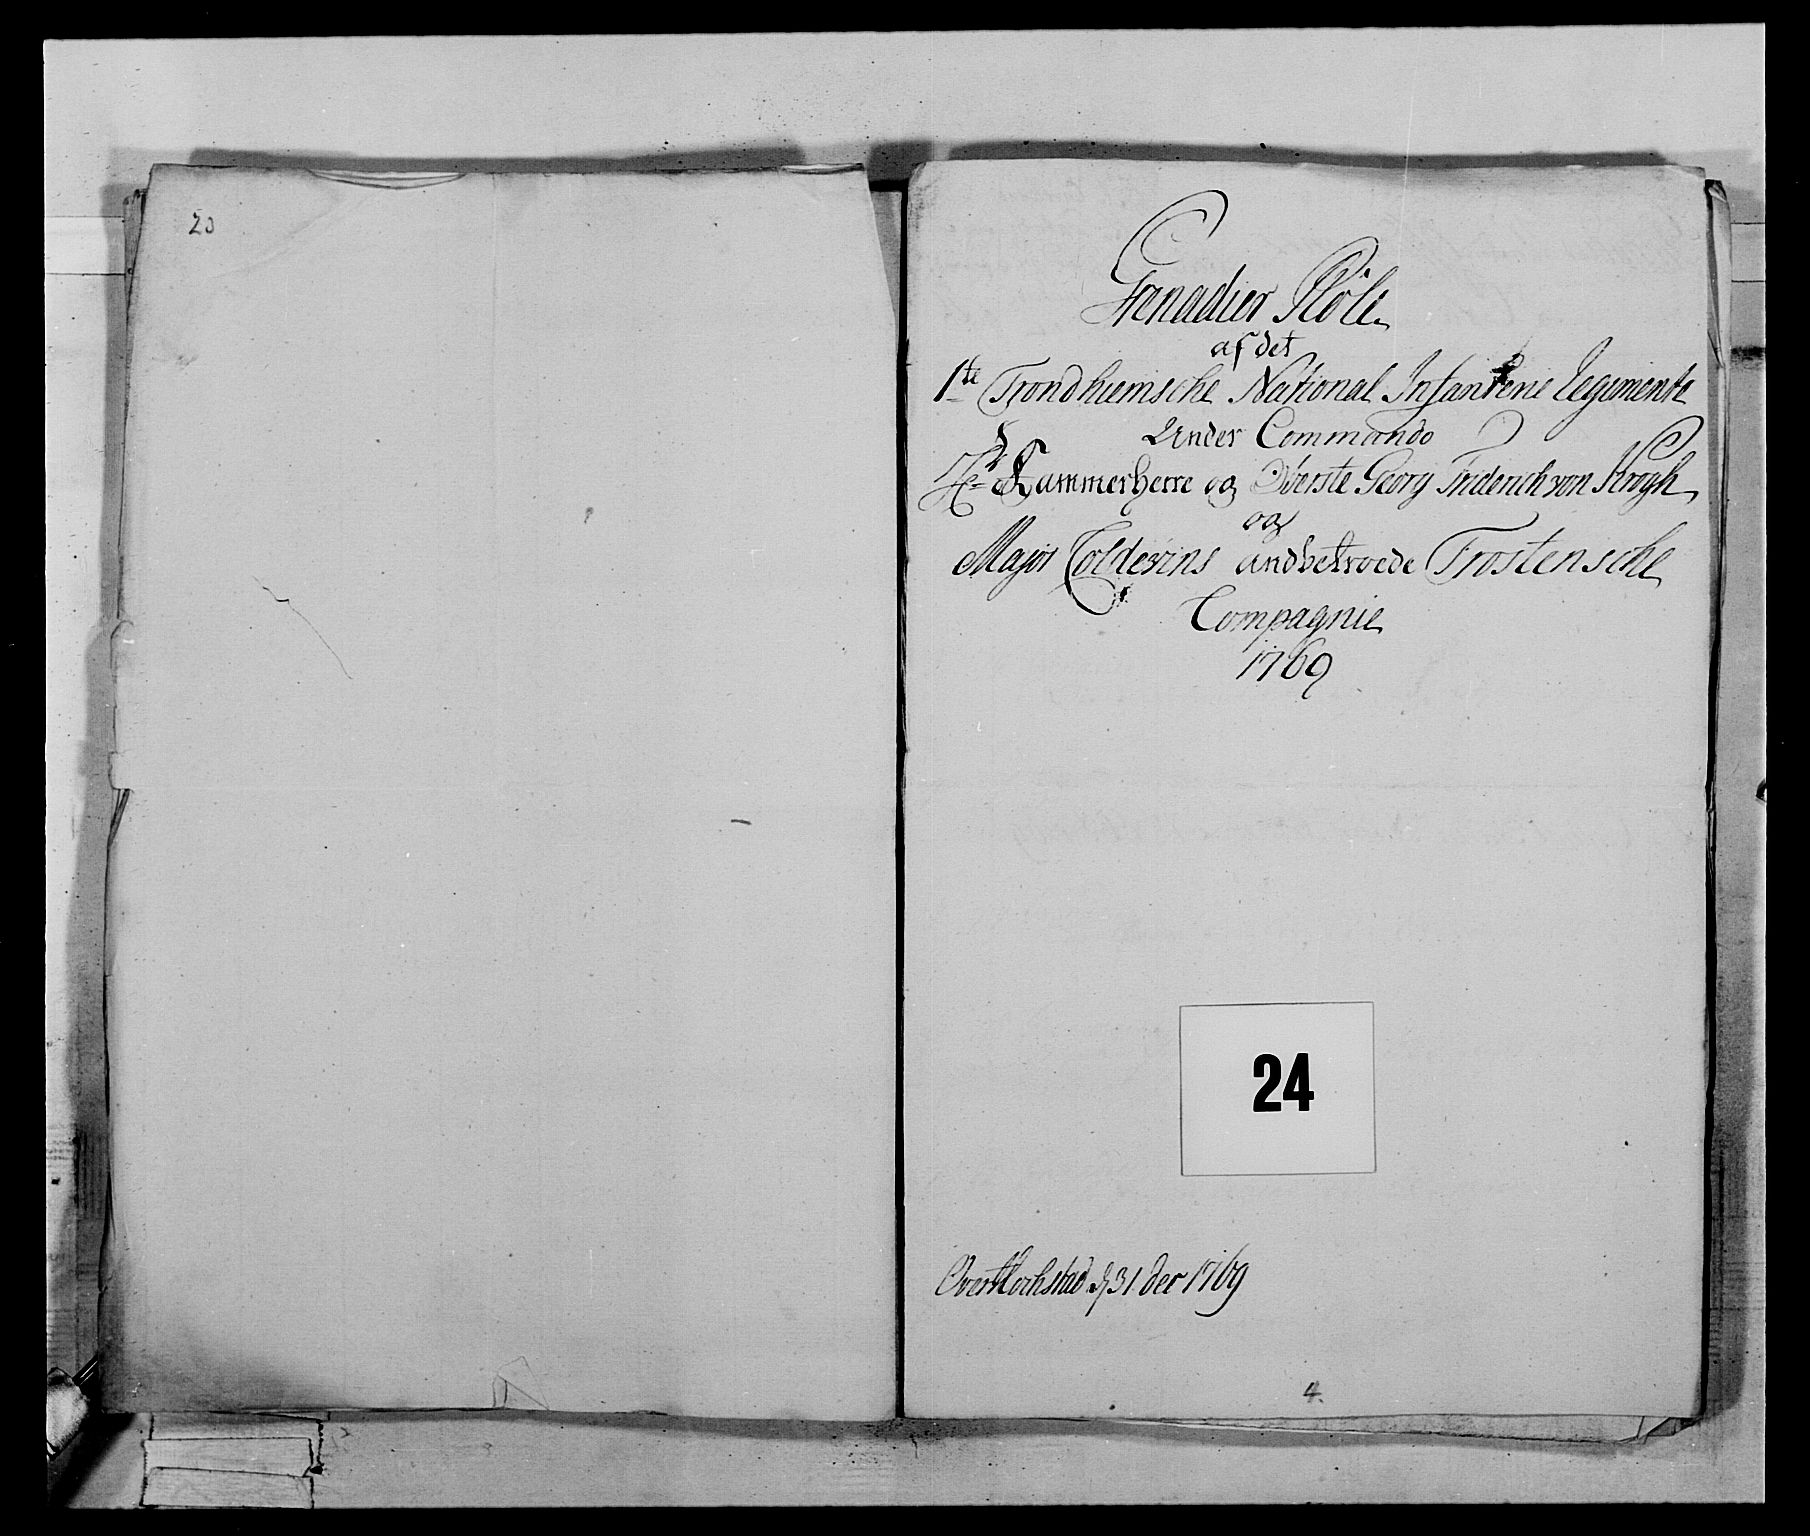 23
Grenadier Rolle
af det
1te Trondhiemsche National Infanterie Regimente
Under Commando
Hr Kammerherre og Øverste Georg Friderich von Krogh
og
Major Coldevins andbetroede Frostensche
Compagnie
1769
24
d 31 dec 1769
4.